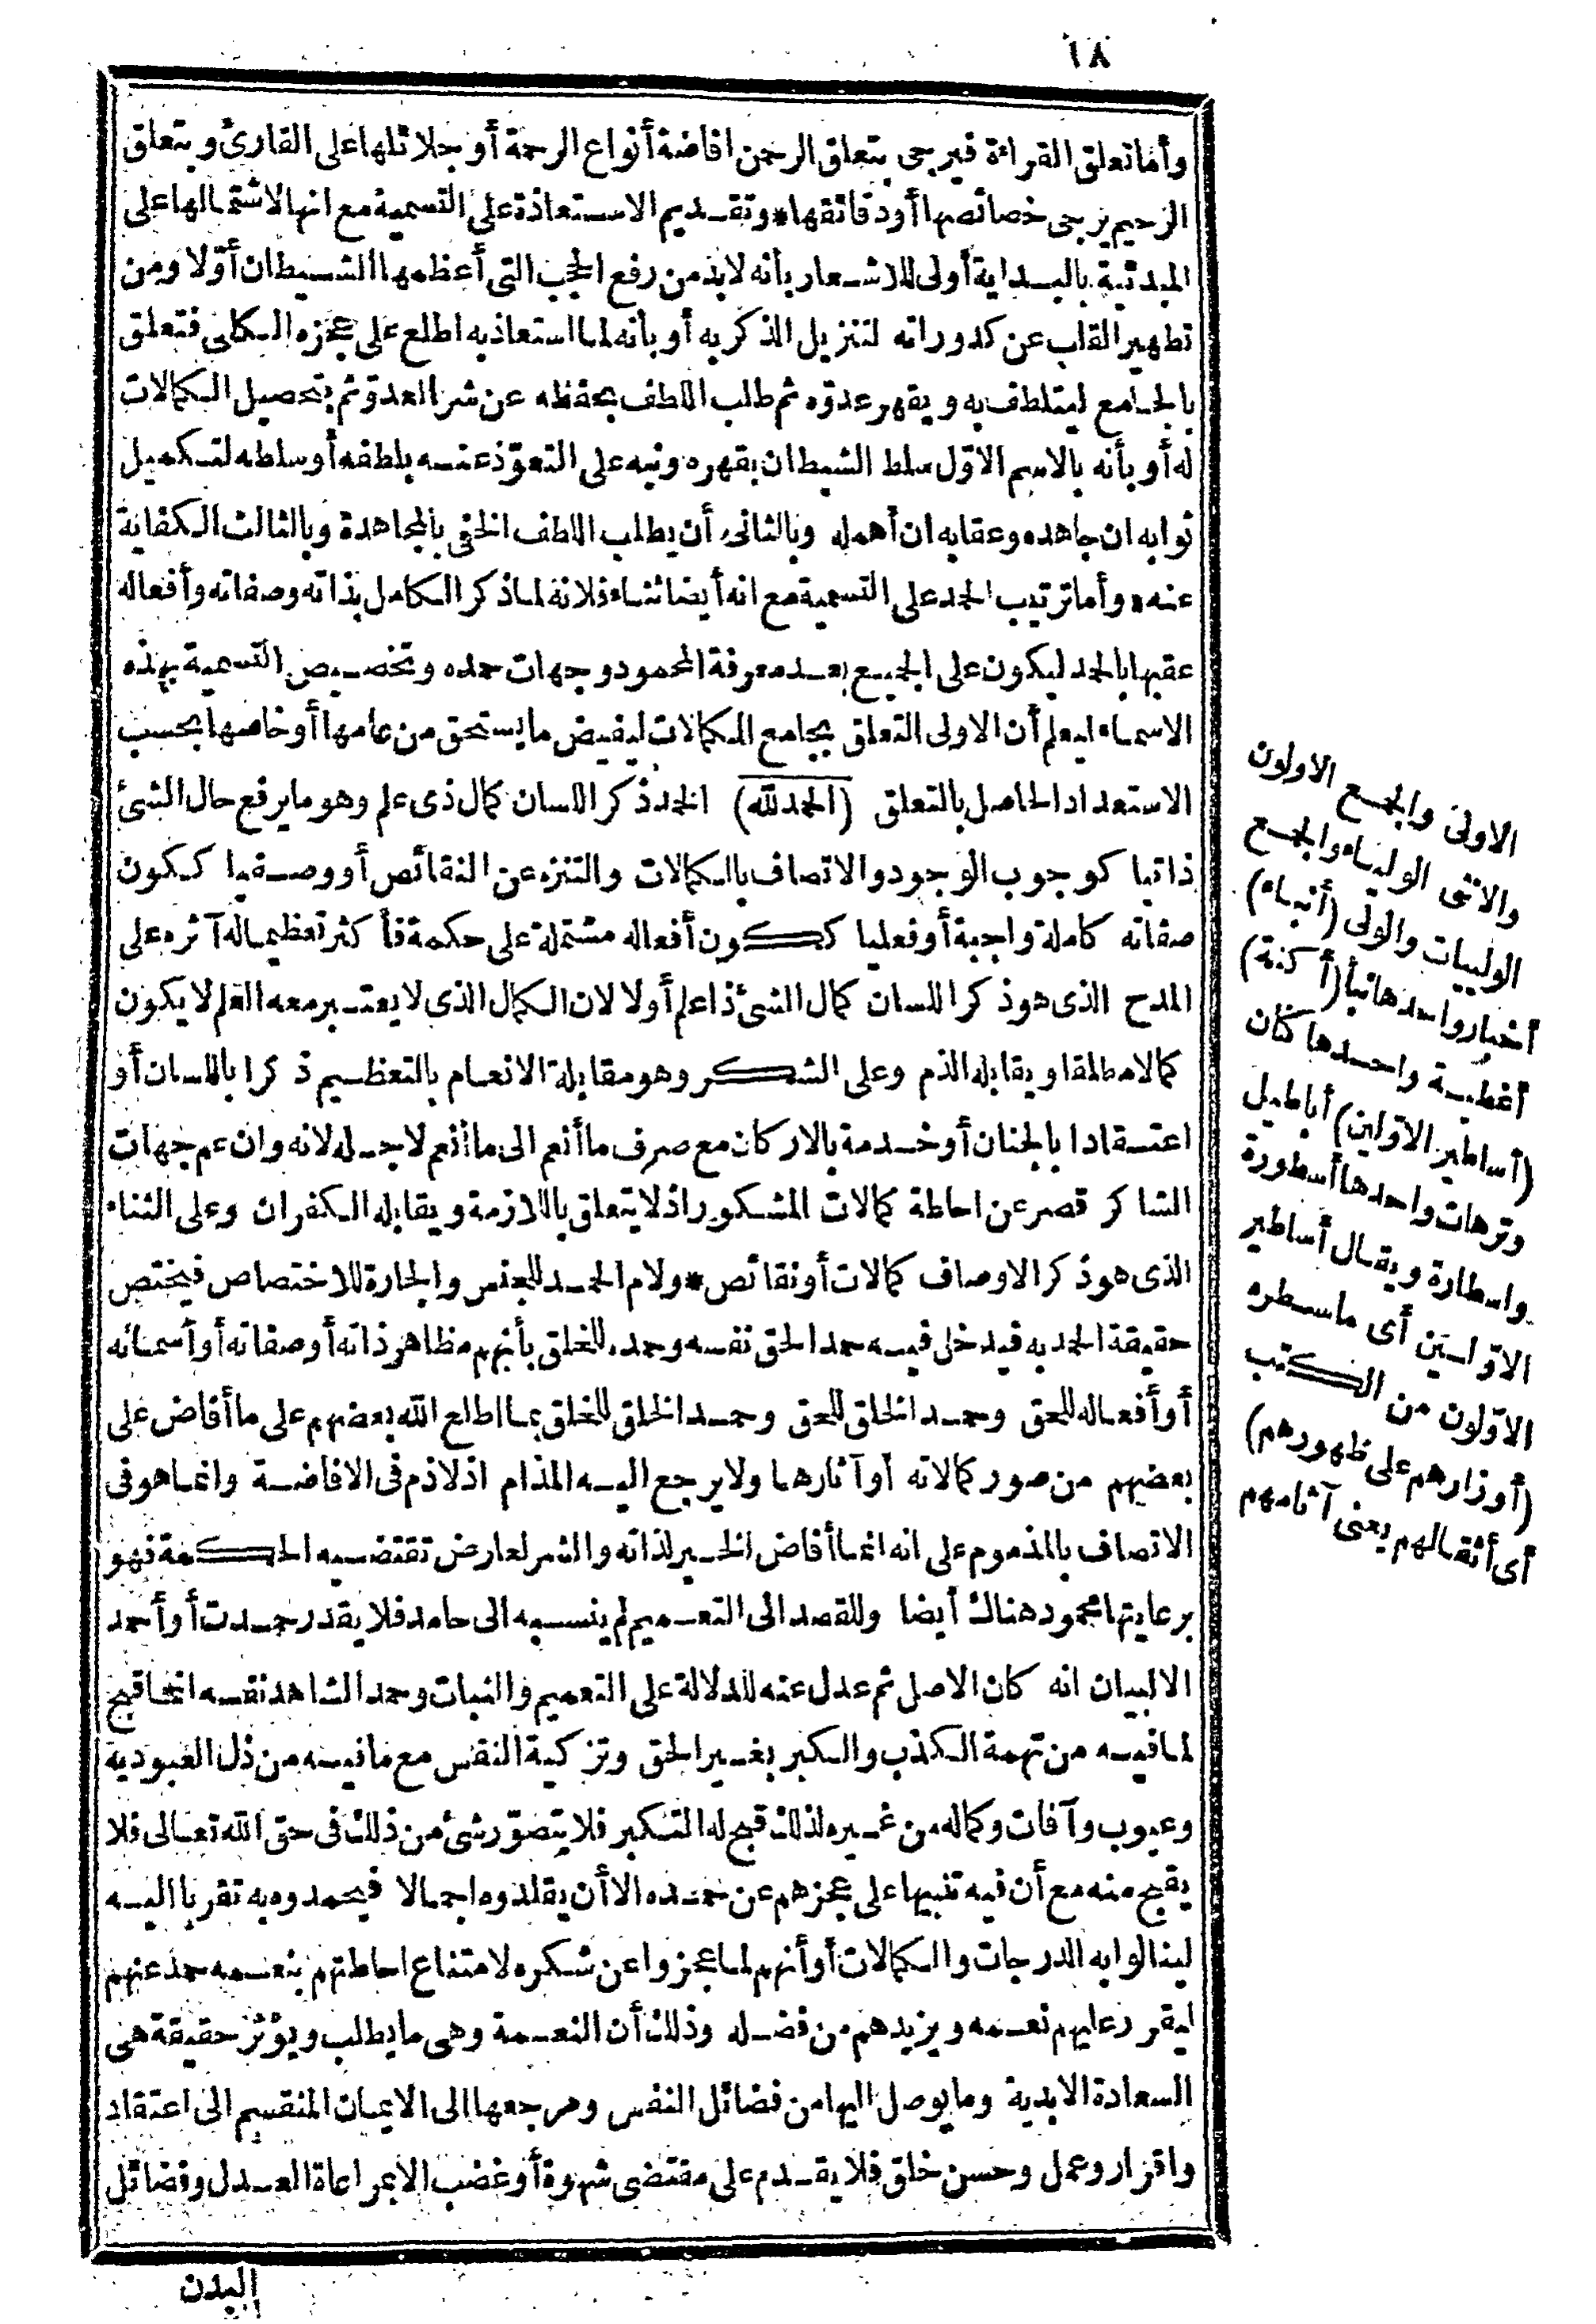 ١٨
وأما تعلق القراءة فيرجى بتعلق الرحمن افاضة أنواع الرحمة أو جلائلها على القارئ وبتعلق
الرحيم يرجى خصائصها أو دقائقها * وتقديم الاستعاذة على التسمية مع انها لاشتمالها على
المبدئية بالبداية أولى للاشعار بأنه لابد من رفع الحجب التى أعظمها الشيطان أوّلا ومن
تطهير القلب عن كدوراته لتنزيل الذكر به أو بأنه لما استعاذ به اطلع على عجزه الكلى فتعلق
بالجامع ليتلطف به ويقهر عدوّه ثم طلب اللطف بحفظه عن شر العدوّ ثم بتحصيل الكمالات
له أو بأنه بالاسم الاوّل سلط الشيطان بقهره ونبه على التعوّذ عنه بلطفه أو سلطه لتكميل
ثوابه ان جاهده وعقابه ان أهمله وبالثانى أن يطلب اللطف الخفى بالمجاهدة وبالثالث الكفاية
عنه * وأما ترتيب الحمد على التسمية مع انه أيضا ثناء فلانه لما ذكر الكامل بذاته وصفاته وأفعاله
عقبها بالحمد ليكون على الجميع بعد معرفة المحمود وجهات حمده وتخصيص التسمية بهذه
الاسماء ليعلم أن الاولى التعلق بجامع الكمالات ليفيض ما يستحق من عامها أو خاصها بحسب
الاستعداد الحاصل بالتعلق (الحمد لله) الحمد ذكر اللسان كمال ذى علم وهو ما يرفع حال الشئ
ذاتيا كوجوب الوجود والاتصاف بالكمالات والتنزه عن النقائص أو وصفيا ككون
صفاته كاملة واجبة أو فعليا ككون أفعاله مشتملة على حكمة فأكثر تعظيما له آثره على
المدح الذى هو ذكر اللسان كمال الشئ ذا علم أولا لان الكمال الذى لا يعتبر معه العلم لا يكون
كمالا مطلقا ويقابله الذم وعلى الشكر وهو مقابلة الانعام بالتعظيم ذكرا باللسان أو
اعتقادا بالجنان أو خدمة بالاركان مع صرف ما أنعم الى ما أنعم لاجله لانه وان عم جهات
الشاكر قصر عن احاطة كمالات المشكور اذ لا يتعلق باللازمة ويقابله الكفران وعلى الثناء
الذى هو ذكر الاوصاف كمالات أو نقائص * ولام الحمد للجنس والجارة للاختصاص فيختص
حقيقة الحمد به فيدخل فيه حمد الحق نفسه وحمده للخلق بأنهم مظاهر ذاته أو صفاته أو أسمائه
أو أفعاله للحق وحمد الخلق للحق وحمد الخلق للخلق بما اطلع الله بعضهم على ما أفاض على
بعضهم من صور كمالاته أو آثارها ولا يرجع اليه المذام اذ لا ذم فى الافاضة وانما هو فى
الاتصاف بالمذموم على انه انما أفاض الخير لذاته والشر لعارض تقتضيه الحكمة فهو
برعايتها محمود هناك أيضا وللقصد الى التعميم لم ينسبه الى حامد فلا يقدر حمدت أو أحمد
الا لبيان انه كان الاصل ثم عدل عنه للدلالة على التعميم والثبات وحمد الشاهد نفسه انما قبح
لما فيه من تهمة الكذب والكبر بغير الحق وتزكية النفس مع ما فيه من ذل العبودية
وعيوب وآفات وكماله من غيره لذلك قبح له التكبر فلا يتصوّر شئ من ذلك فى حق الله تعالى فلا
يقبح منه مع أن فيه تنبيها على عجزهم عن حمده الا أن يقلدوه اجمالا فيحمدوه به تقربا اليه
لينالوا به الدرجات والكمالات أو أنهم لما عجزوا عن شكره لامتناع احاطتهم بنعمه حمد عنهم
ليقرر عليهم نعمه ويزيدهم من فضله وذلك أن النعمة وهى ما يطلب ويؤثر حقيقة هى
السعادة الابدية وما يوصل اليها من فضائل النفس ومرجعها الى الايمان المنقسم الى اعتقاد
واقرار وعمل وحسن خلق فلا يقدم على مقتضى شهوة أو غضب الا بمراعاة العدل وفضائل
البدن
الاولى والجمع الاولون
والانثى الولياء والجمع
الوليات والولى (أنباء)
أخبار واحدها نبأ (أكنة)
أغطية واحدها كنان
(أساطير الاوّلين) أباطيل
وترهات واحدها أسطورة
واسطارة ويقال أساطير
الاوّلين أى ما سطره
الاوّلون من الكتب
(أوزارهم على ظهورهم)
أى أثقالهم يعنى آثامهم